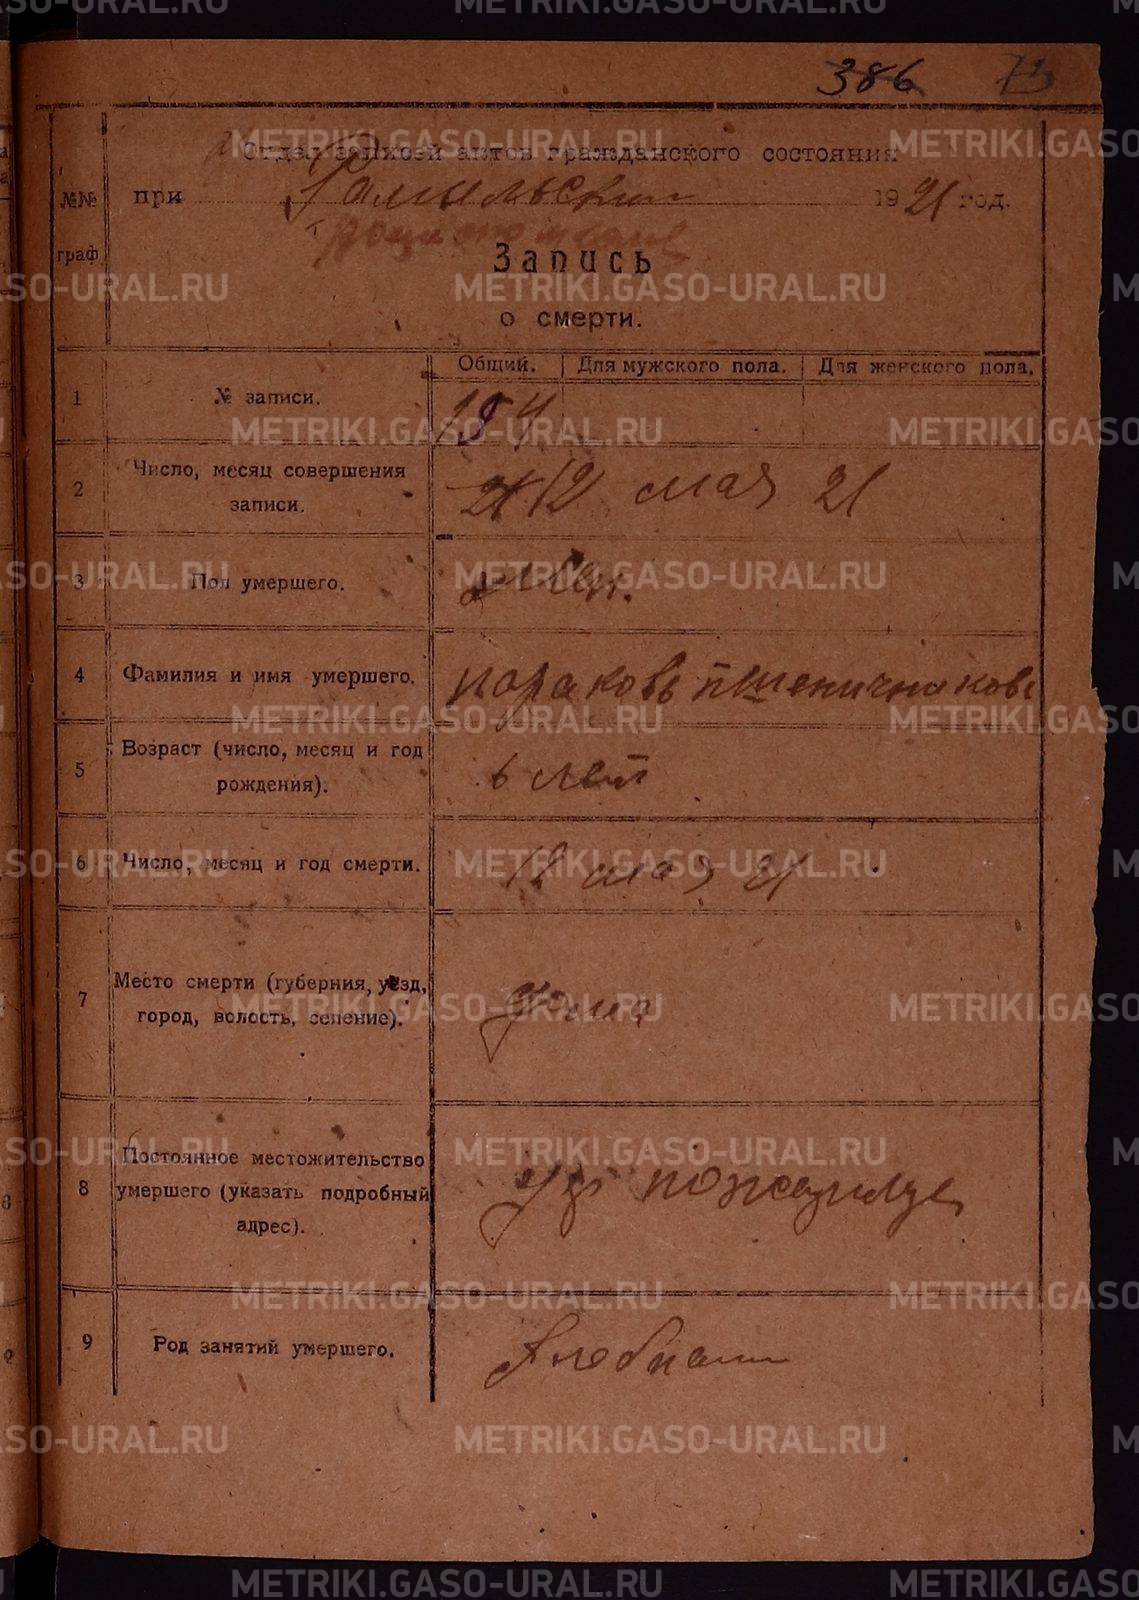 386 73
Отдел записей актов гражданского состояния
при 1921 год.
№№
граф
Запись
о смерти.
Общий. Для мужского пола. Для женского пола.
1 № записи. 154
2 Число, месяц совершения
записи. 12 мая 21
3 Пол умершего.
4 Фамилия и имя умершего. Пшеничников
5 Возраст (число, месяц и год
рождения). 6 лет
6 Число, месяц и год смерти. 12 мая 21
7 Место смерти (губерния, уезд,
город, волость, селение). дома
8 Постоянное местожительство
умершего (указать подробный
адрес).
9 Род занятий умершего.
METRIKI.GASO-URAL.RU